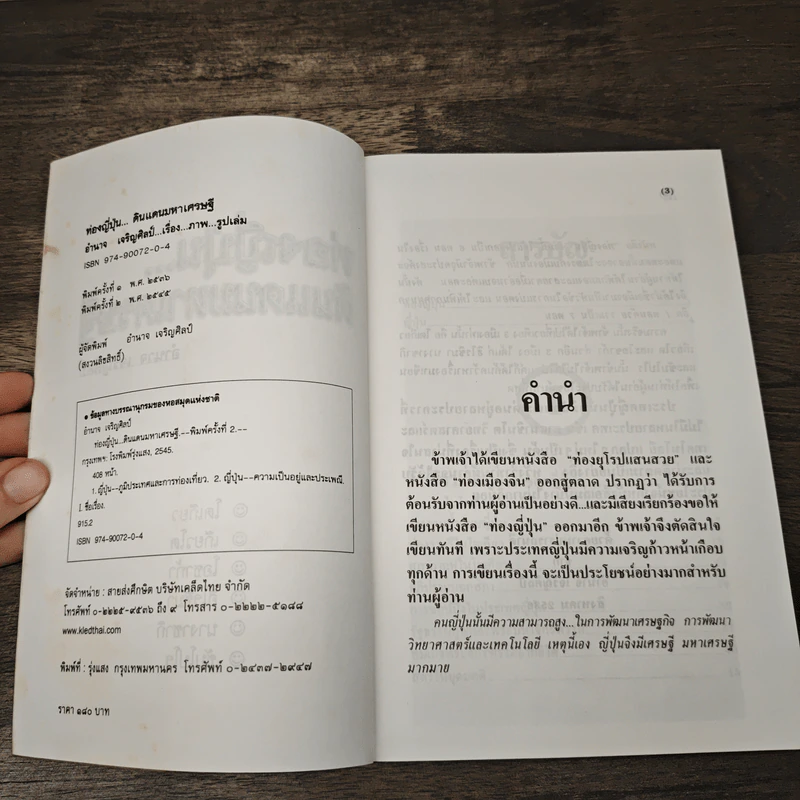 ท่องญี่ปุ่น... ดินแดนมหาเศรษฐี
อำนาจ เจริญศิลป์...เรื่อง...ภาพ...รูปเล่ม
ISBN 974-90072-0-4
พิมพ์ครั้งที่ ๑ พ.ศ. ๒๕๓๖
พิมพ์ครั้งที่ ๒ พ.ศ. ๒๕๔๕
ผู้จัดพิมพ์ อำนาจ เจริญศิลป์
(สงวนลิขสิทธิ์)
● ข้อมูลทางบรรณานุกรมของหอสมุดแห่งชาติ
อำนาจ เจริญศิลป์
ท่องญี่ปุ่น...ดินแดนมหาเศรษฐี.--พิมพ์ครั้งที่ 2.--
กรุงเทพฯ: โรงพิมพ์รุ่งแสง, 2545.
408 หน้า.
1. ญี่ปุ่น--ภูมิประเทศและการท่องเที่ยว. 2. ญี่ปุ่น--ความเป็นอยู่และประเพณี.
I. ชื่อเรื่อง.
915.2
ISBN 974-90072-0-4
จัดจำหน่าย : สายส่งศึกษิต บริษัทเคล็ดไทย จำกัด
โทรศัพท์ ๐-๒๒๒๕-๙๕๓๖ ถึง ๙ โทรสาร ๐-๒๒๒๒-๕๑๘๘
www.kledthai.com
พิมพ์ที่ : รุ่งแสง กรุงเทพมหานคร โทรศัพท์ ๐-๒๔๓๗-๒๙๔๗
ราคา ๑๘๐ บาท
(3)
คำนำ
ข้าพเจ้าได้เขียนหนังสือ "ท่องยุโรปแสนสวย" และ
หนังสือ "ท่องเมืองจีน" ออกสู่ตลาด ปรากฏว่า ได้รับการ
ต้อนรับจากท่านผู้อ่านเป็นอย่างดี...และมีเสียงเรียกร้องขอให้
เขียนหนังสือ "ท่องญี่ปุ่น" ออกมาอีก ข้าพเจ้าจึงตัดสินใจ
เขียนทันที เพราะประเทศญี่ปุ่นมีความเจริญก้าวหน้าเกือบ
ทุกด้าน การเขียนเรื่องนี้ จะเป็นประโยชน์อย่างมากสำหรับ
ท่านผู้อ่าน
คนญี่ปุ่นนั้นมีความสามารถสูง...ในการพัฒนาเศรษฐกิจ การพัฒนา
วิทยาศาสตร์และเทคโนโลยี เหตุนี้เอง ญี่ปุ่นจึงมีเศรษฐี มหาเศรษฐี
มากมาย